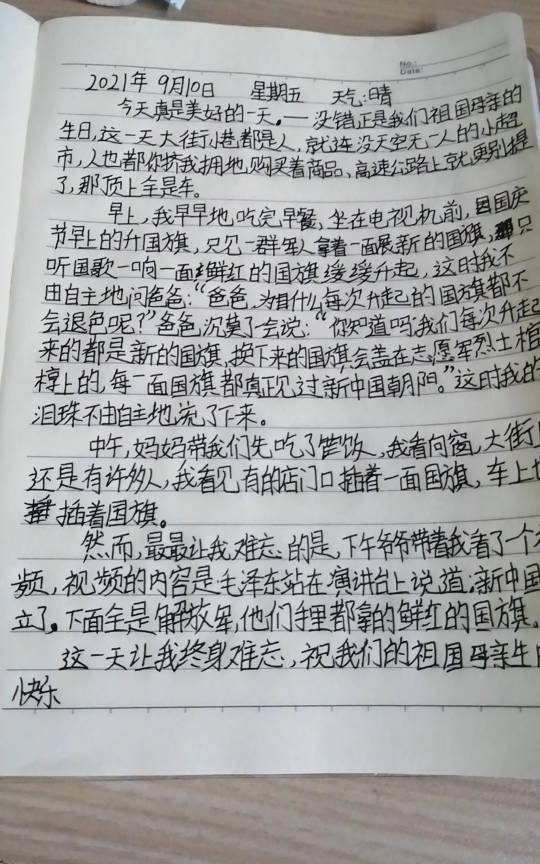 No.:
Date:
2021年 9月10日 星期五 天气:晴
今天真是美好的一天。一没错正是我们祖国母亲的
生日,这一天大街小巷都是人,就连没天空无一人的小超
市,人也都你挤我拥地,购买着商品、高速公路上就更别提
了,那顶上全是车。
早上,我早早地吃完早餐,坐在电视机前,国庆
节早上的升国旗,只见一群军人拿着一面展新的国旗,只
听国歌一响一面鲜红的国旗缓缓升起,这时我不
由自主地问爸爸:“爸爸,为什么每次升起的国旗都不
会退色呢?”爸爸,沉莫了一会说:“你知道吗,我们每次升起
来的都是新的国旗,换下来的国旗,会盖在志愿军烈士棺
椁上的,每一面国旗都真正见过新中国朝阳。”这时我的
泪珠不由自主地流了下来。
中午,妈妈带我们先吃了饭,我看向窗,大街
还是有许多人,我看见有的店门口插着一面国旗,车上
插着国旗。
然而,最最让我难忘的是,下午爷爷带着我看了一个
频,视频的内容是毛泽东站在演讲台上说道:新中国
立了。下面全是解放军,他们手里都拿的鲜红的国旗。
这一天让我终身难忘,祝我们的祖国母亲生
快乐